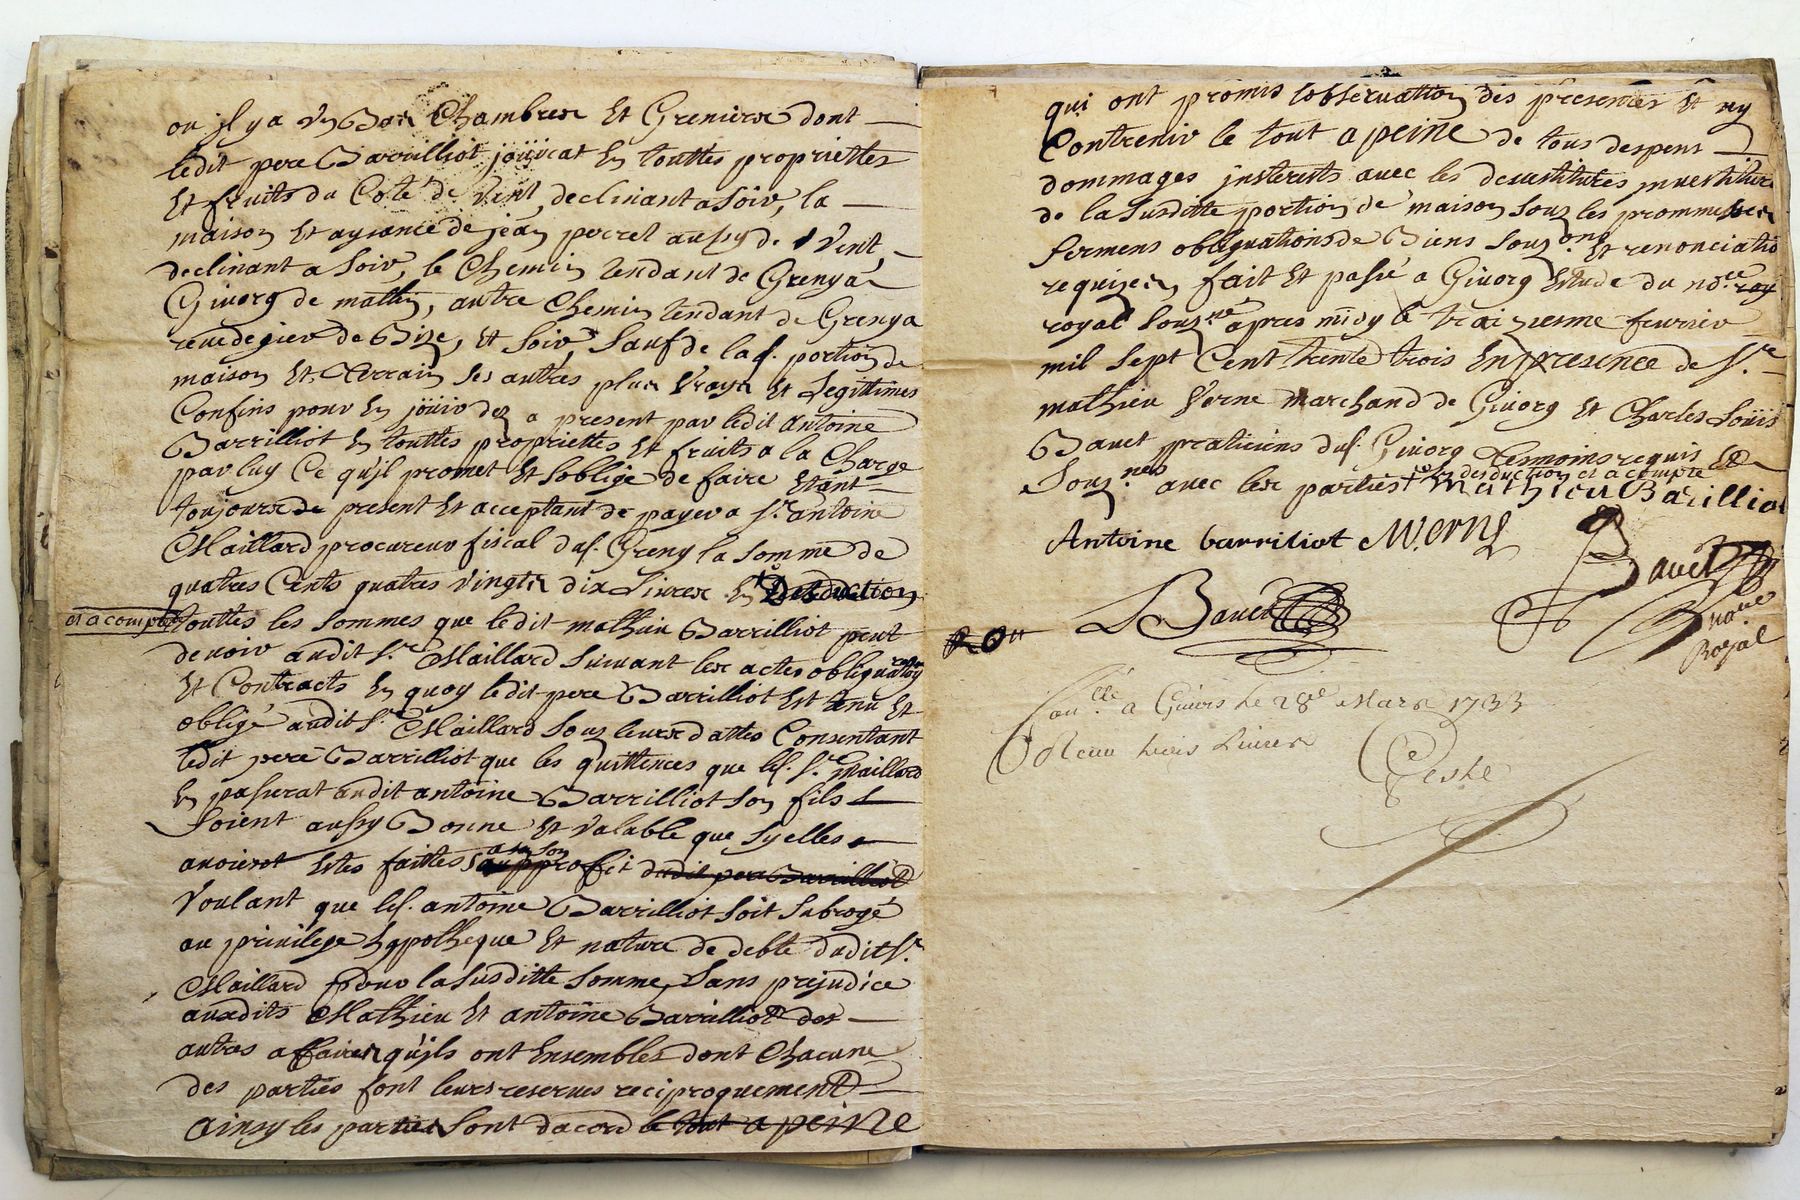 ou jl y a un Bas Chambres Et Greniers dont
ledit pere Barrilliot joüirat En touttes propriettes
Et fruits du Coté de Vent, declinant a Soir, la
maison Et aysance de jean perret aussy de Vent,
declinant a Soir, le Chemin tendant de Greny a
Givorg de matin, autre Chemin tendant de Greny a
rivedegier de Bize, Et Soir, Sauf de lad. portion de
maison Et terrain ses autres plus Vrays Et Legittimes
Confins pour En joüir dez a present par ledit antoine
Barrilliot En touttes propriettes Et fruits a la Charge
par luy Ce qu'jl promet Et s'oblige de faire Etant
toujours de present Et acceptant de payer a Sr. antoine
Maillard procureur fiscal dud. Greny la Somme de
quatres Cents quatres vingts dix Livres En Desduction
et a compte
touttes les Sommes que ledit mathieu Barrilliot peut
devoir audit Sr. Maillard Suivant les actes obliguatoy
Et Contracts En quoy ledit pere Barrilliot Est tenu Et
obligé audit Sr. Maillard Sous leurs dattes Consentant
ledit pere Barrilliot que les quittences que led. Sr. Maillard
En passerat audit antoine Barrilliot Son fils
Soient aussy Bonne Et valable que Sy elles
avoient Etés faittes au profit dudit pere Barrilliot
a son
Voulant que led. antoine Barrilliot Soit Subrogé
au privilege hypotheque Et nature de debte dudit Sr.
Maillard pour la Susditte Somme, Sans prejudice
auxdits Mathieu Et antoine Barrilliot des
autres affaires qu'jls ont Ensembles dont Chacune
des parties font leurs reserves reciproquement
ainsy les parties Sont dacord le tout a peine
qui ont promis lobservation des presentes Et ny
Contrenir le tout a peine de tous despens
dommages jnsterests avec les desvestitures jnvestiture
de la Susditte portion de maison Sous les prommesses
sermens obliguations de Biens Souz.ons Et renonciatio
requizes, fait Et passé a Givorg Etude du no.re roy
royal Souz.né apres midy le traiziesme fevrier
mil Sept Cent trente trois En presence de Sr.
mathieu Verne marchand de Givorg Et Charles Loüis
Bauet praticiens dud. Givorg tesmoins requis Et
Souz.nés avec les parties + en desduction et a compte
Mathieu Barilliot
Antoine barriliot M. Verne
Bauet
LBauet
no.re
Royal
ROtt
Con.llé a Givors le 28e Mars 1733
Reçu trois Livres